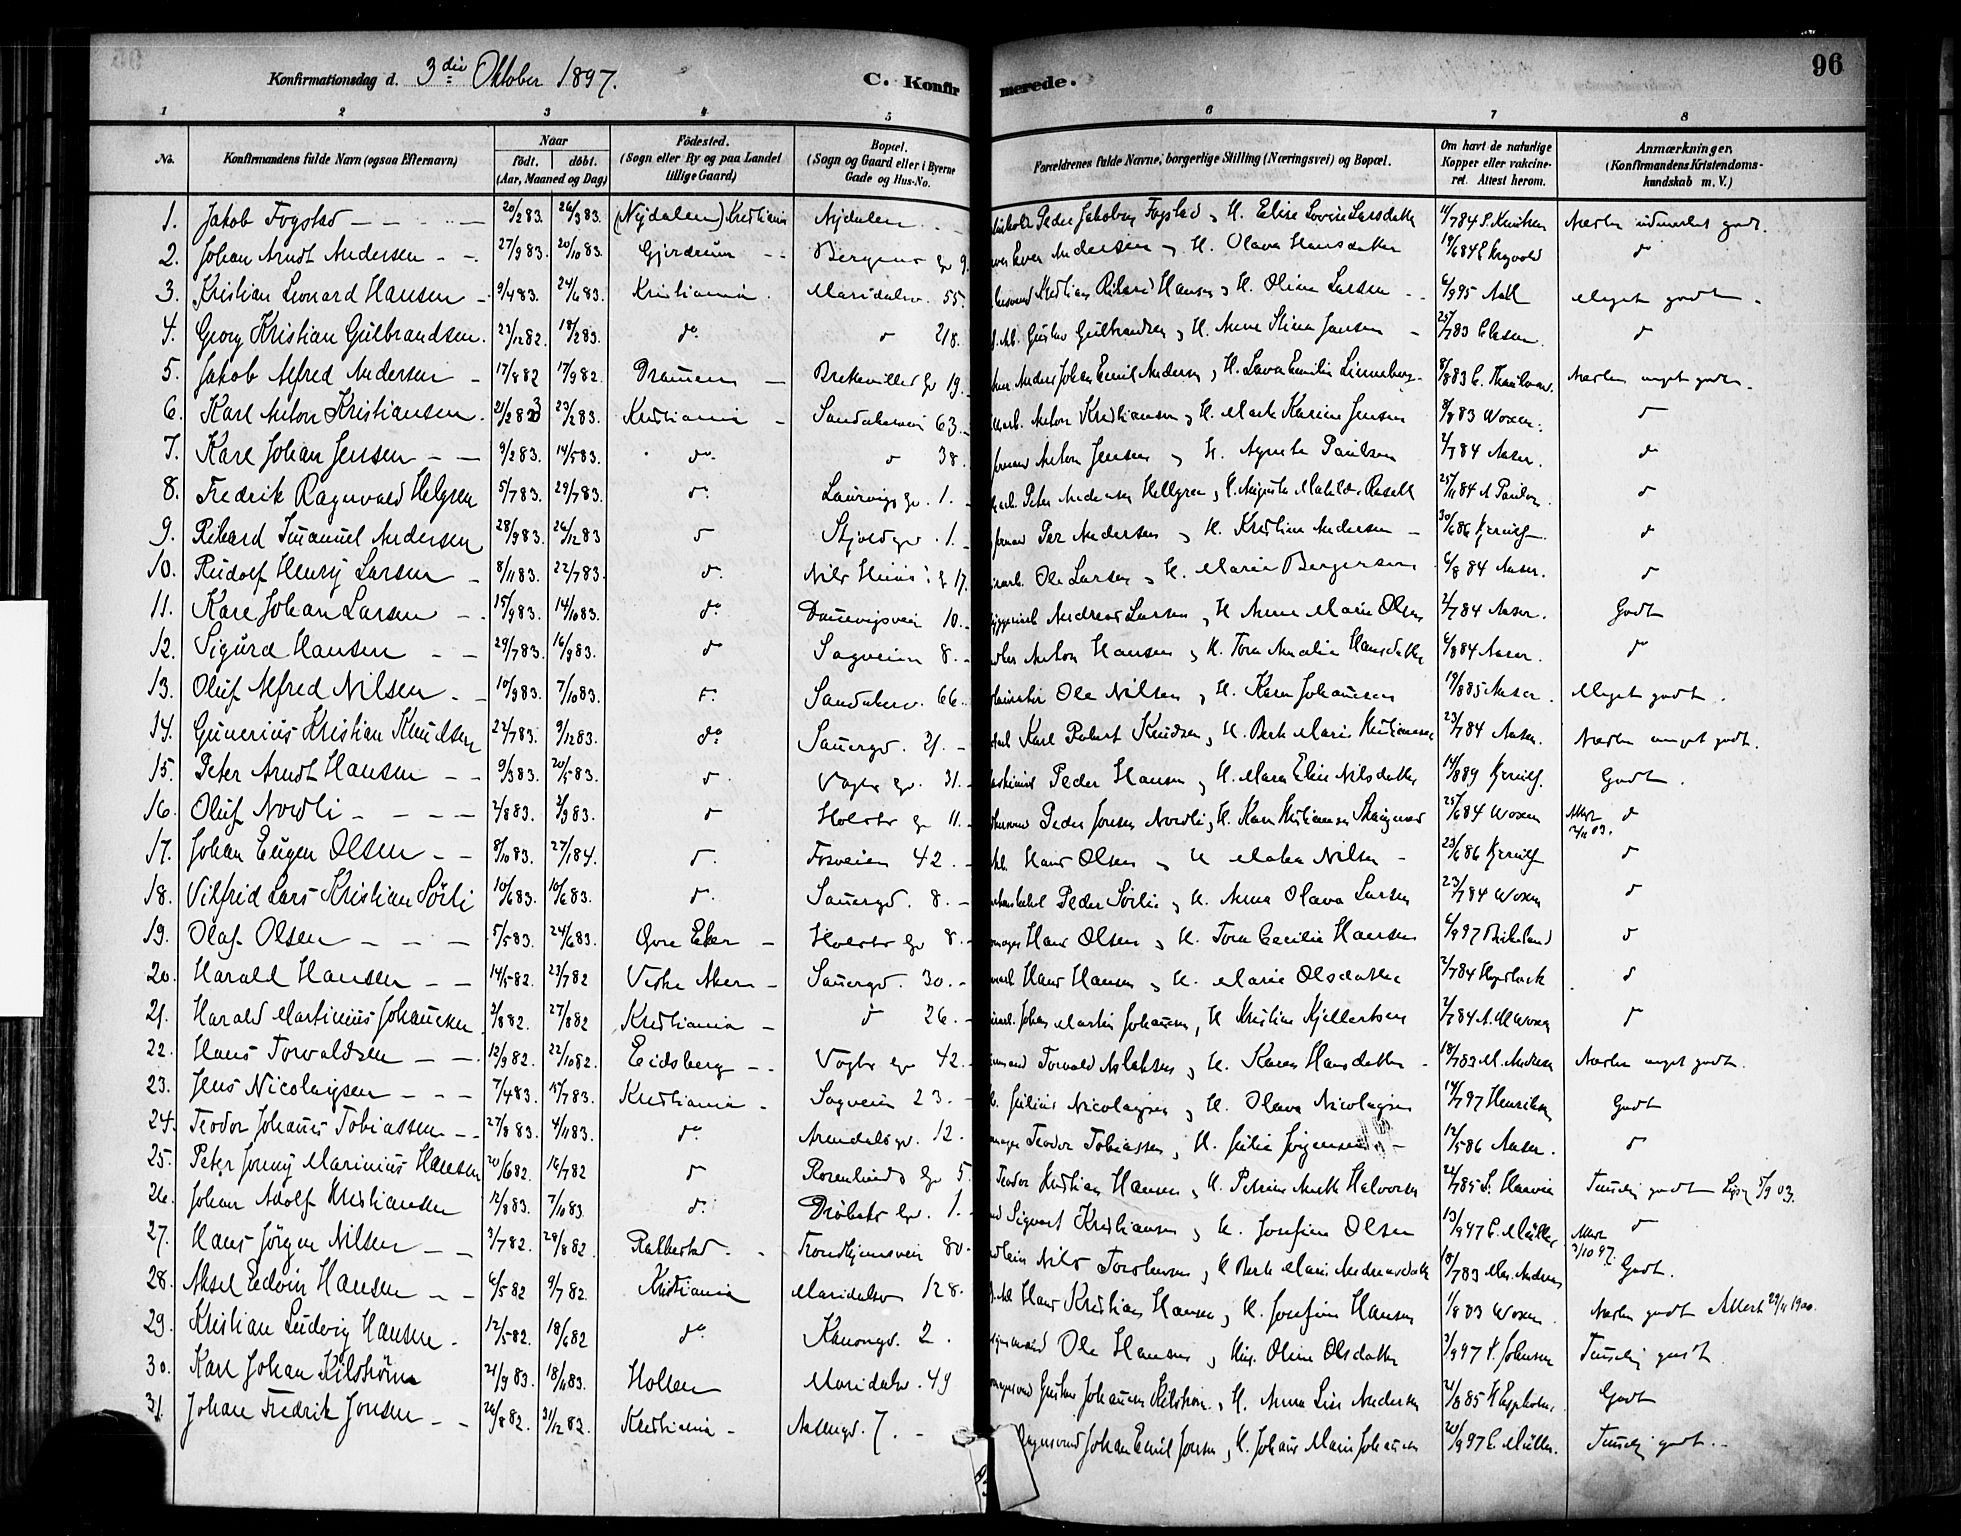 96
Konfirmationsdag d. 3die Oktober 1897.
C. Konfirmerede.
1 2 3 4 5 6 7 8
No.
Konfirmandens fulde Navn (ogsaa Efternavn)
Naar
födt. döbt.
(Aar, Maaned og Dag)
Födested.
(Sogn eller By og paa Landet
tillige Gaard)
Bopæl.
(Sogn og Gaard eller i Byerne
Gade og Hus-No.
Forældrenes fulde Navne, borgerlige Stilling (Næringsvei) og Bopæl.
Om havt de naturlige
Kopper eller vakcine-
ret. Attest herom.
Anmærkninger.
(Konfirmandens Kristendoms-
kundskab m. V.)
1. Jakob Fogstad 20/2 83. 26/3 83. (Nydalen) Kristiania Nydalen Peder Jakobsen Fogstad, H. Elise Lovise Larsdatter 4/7 84 S. Knutsen Næsten udmærket godt.
2. Johan Arndt Andersen 27/9 83. 20/10 83. Gjerdrum Bergens gd 9. Andersen, H. Olava Hansdatter 19/6 84 do
3. Kristian Leonard Hansen 9/4 83. 24/6 83. Kristiania Maridalsv. 55. Kristian Rikard Hansen, H. Oline Larsen 6/9 95 Aall Meget godt
4. Georg Kristian Gulbrandsen 23/12 82. 18/2 83. do do 218. Gustav Gulbrandsen, H. Anne Stina Jansen 25/7 83 Clasen do
5. Jakob Alfred Andersen 17/8 82 17/9 82. Drammen Brekkevilles gd 19. Anders Johan Emil Andersen, H. Lava Emilie Linneberg 8/8 83 Næsten meget godt.
6. Karl Anton Kristiansen 21/2 83 23/ 83. Kristiania Sandakerveien 63. Anton Kristiansen, H. Marte Karine Jensen 8/8 83 Woxen. do
7. Karl Johan Jensen 9/2 83. 14/5 83. do do 38. Anton Jensen, H. Agnete Paulsen 2/7 84 Aaser. do
8. Fredrik Ragnvald Helgren 5/7 83. 29/7 83. do Laurvigs gd. 1. Peter Andersen Hellgren, H. Augusta Matilde 25/11 84 A Paulsen do
9. Rikard Imanuel Andersen 28/9 83. 26/12 83 do 1. Per Andersen, H. Kristine Andersen 30/6 86 Kjerulf do
10. Rudolf Henry Larsen 8/11 83. 22/7 83. do Nils Huus' g 17. Ole Larsen, H. Maren Bergersen 6/8 84 Aaser. do
11. Karl Johan Larsen 15/9 83. 14/10 83. do Dannevigsvein 10. Andreas Larsen, H. Anne Marie Olsen 2/7 84 Aaser. Godt
12. Sigurd Hansen 29/7 83. 16/9 83. do Sagveien 8. Anton Hansen, H. Tora Amalie Hansdatter 6/8 84 Aaser. do
13. Oluf Alfred Nilsen 10/9 83. 7/10 83. do Sandakerv. 66. Ole Nilsen, H. Karen Johannesen 19/8 85 Aaser Meget godt.
14. Gunerius Kristian Knudsen 22/7 83. 9/12 83. do Sannergd. 21. Karl Robert Knudsen, H. Berte Marie Kristiansen 23/7 84 Aaser. Næsten meget godt.
15. Peter Arndt Hansen 9/3 83. 20/5 83. do Vogts gd. 31. Peder Hansen, H. Maren Eline Nilsdatter 14/8 89 Kjerulf. Godt.
16. Oluf Nordli 2/8 83. 2/9 83. do Holsts gd 11. Peder Jensen Nordli, H. Karen Kristiansen 25/6 84 Woxen Attest do
17. Johan Eugen Olsen 8/10 83. 27/1 84. do Fosveien 42. Hans Olsen, H. Nilsen 23/6 86 Kjerulf do
18. Vilfrid Lars Kristian Sörli 10/6 83. 10/6 83. do Sannergd. 8. Peder Sörlie, H. Anna Olava Larsen 23/7 84 Woxen do
19. Olaf Olsen 5/5 83. 24/6 83. Övre Eker Holsts gd 8. Hans Olsen, H. Tora Cecilie Hansen 6/9 97 Birkeland do
20. Harald Hansen 14/5 82. 23/7 82 Vestre Aker Sannergd. 30. Hans Hansen, H. Marie Olsdatter 2/7 84 do
21. Harald Martinius Johannesen 2/8 82. 27/8 82 Kristiania do 26. Johan Martin Johannesen, H. Kristine Kjellertsen 2/7 84 A. M Woxen do
22. Hans Torvaldsen 12/9 82. 22/10 82. Eidsberg Vogts gd 42. Torvald Aslaksen, H. Karen Hansdatter 18/7 83 M. Andersen Næsten meget godt.
23. Jens Nicolaysen 7/4 83. 15/7 83. Kristiania Sagveien 23. Julius Nicolaysen, H. Olava Nicolaysen 14/7 97 Henriksen Godt
24. Teodor Johannes Tobiassen 27/8 83 4/11 83. do Arendalsgd. 12. Teodor Tobiassen, H. Julie Jörgensen 12/5 86 Aaser. do
25. Peter Jonny Marinius Hansen 20/6 82. 16/7 82 do Rosenlunds gd 5. Teodor Kristian Hansen, H. Petrine Halvorsen 22/7 85 Temmelig godt 03.
26. Johan Adolf Kristiansen 12/8 83. 7/10 83. do Dröbaks gd. 1. Sigvart Kristiansen, H. Josefine Olsen 13/9 97 C. Müller do
27. Hans Jörgen Nilsen 3/7 82. 28/8 82. Rakkestad Trondhjemsvein 80. Nils Torstensen, H. Berte Marie Andreasdatter 18/7 83 Attest 2/10 97. Godt.
28. Aksel Edvin Hansen 6/5 82 9/7 82. Kristiania Maridalsv 128. Hans Kristian Hansen, H. Josefine Hansen 1/8 83 Woxen. Næsten godt Attest 29/11 1900.
29. Kristian Ludvig Hansen 12/5 82. 18/6 82 do Kanongd. 2. Ole Hansen, Hus. Oline Olsdatter 3/9 97 Johnsen Temmelig godt.
30. Karl Johan Kilström 21/9 83. 18/11 83. Holleen Maridalsv. 49 Gustav Johannesen Kilström, H. Anna Lise Andersen 21/8 85 Godt
31. Johan Fredrik Jonsen 26/8 82. 31/12 82. Kristiania 7. Johan Emil Jonsen, H. Johanne Marie Johansen 20/9 97 C. Müller. Temmelig godt.